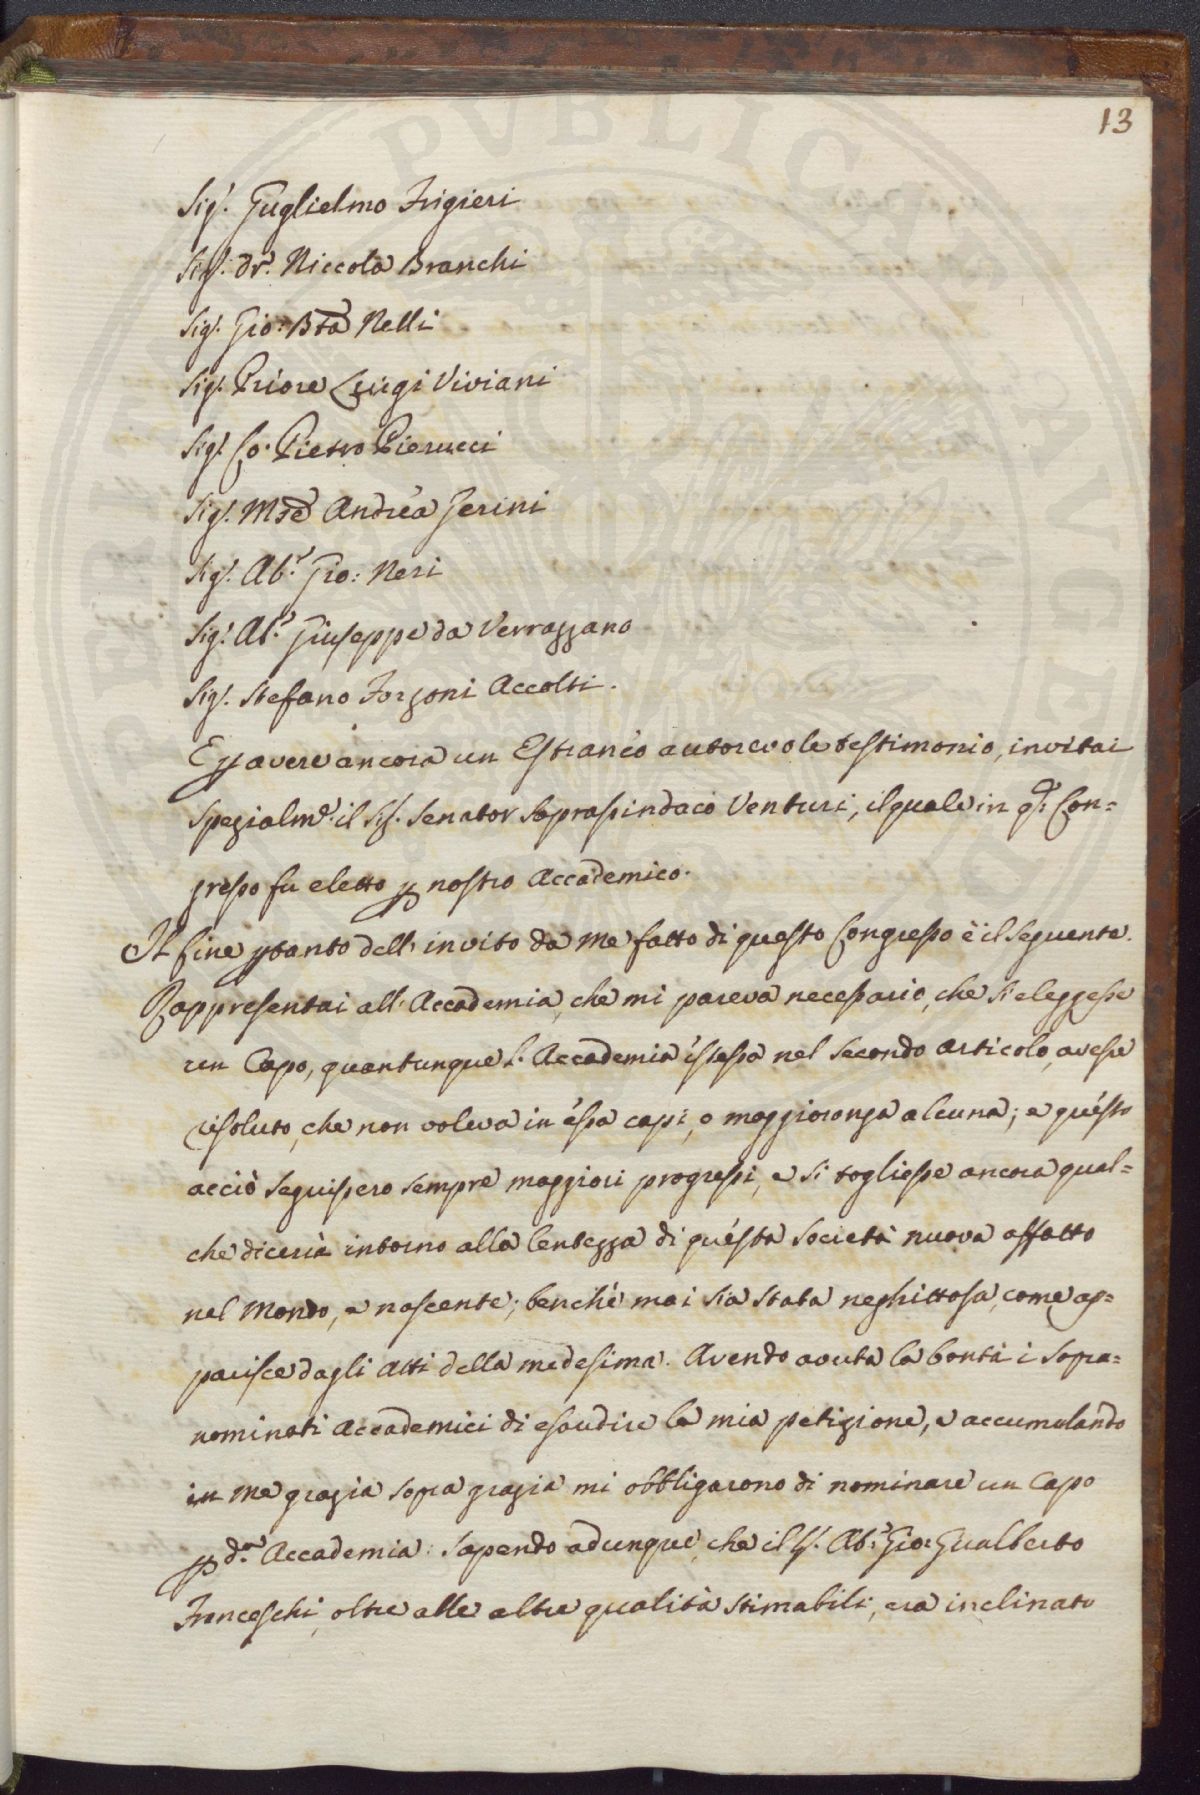 13
Sig.r Guglielmo Frigieri
Sig.r Dr. Niccola Branchi
Sig.r Gio: Bta Nelli
Sig.r Priore Luigi Viviani
Sig.r Co. Pietro Pierucci
Sig.r Mse Andrea Gerini
Sig.r Ab.e Gio: Neri
Sig.r Ab.e Giuseppe da Verrazzano
Sig.r Stefano Forzoni Accolti.
E p avere ancora un Estraneo autorevole testimonio, invitai
spezialm.e il Sig. Senator Soprasindaco Venturi, il quale in q.o Con=
gresso fu eletto p nostro Accademico.
Il fine ptanto dell' invito da me fatto di questo Congresso è il seguente.
Rappresentai all' Accademia, che mi pareva necessario, che si eleggesse
un Capo, quantunque l' Accademia istessa nel secondo articolo, avesse
risoluto, che non voleva in essa capi, o maggioranza alcuna; e questo
acciò seguissero sempre maggiori progressi, e si togliesse ancora qual=
che diceria intorno alla lentezza di questa Società nuova affatto
nel Mondo, e nascente; benché mai sia stata neghittosa, come ap=
parisce dagli Atti della medesima. Avendo avuta la bontà i sopra=
nominati Accademici di esaudire la mia petizione, e accumulando
in me grazia sopra grazia mi obbligarono di nominare un Capo
p d.a Accademia: Sapendo adunque, che il Sig. Ab.e Gio: Gualberto
Franceschi, oltre alle altre qualità stimabili, era inclinato
PVBLIC